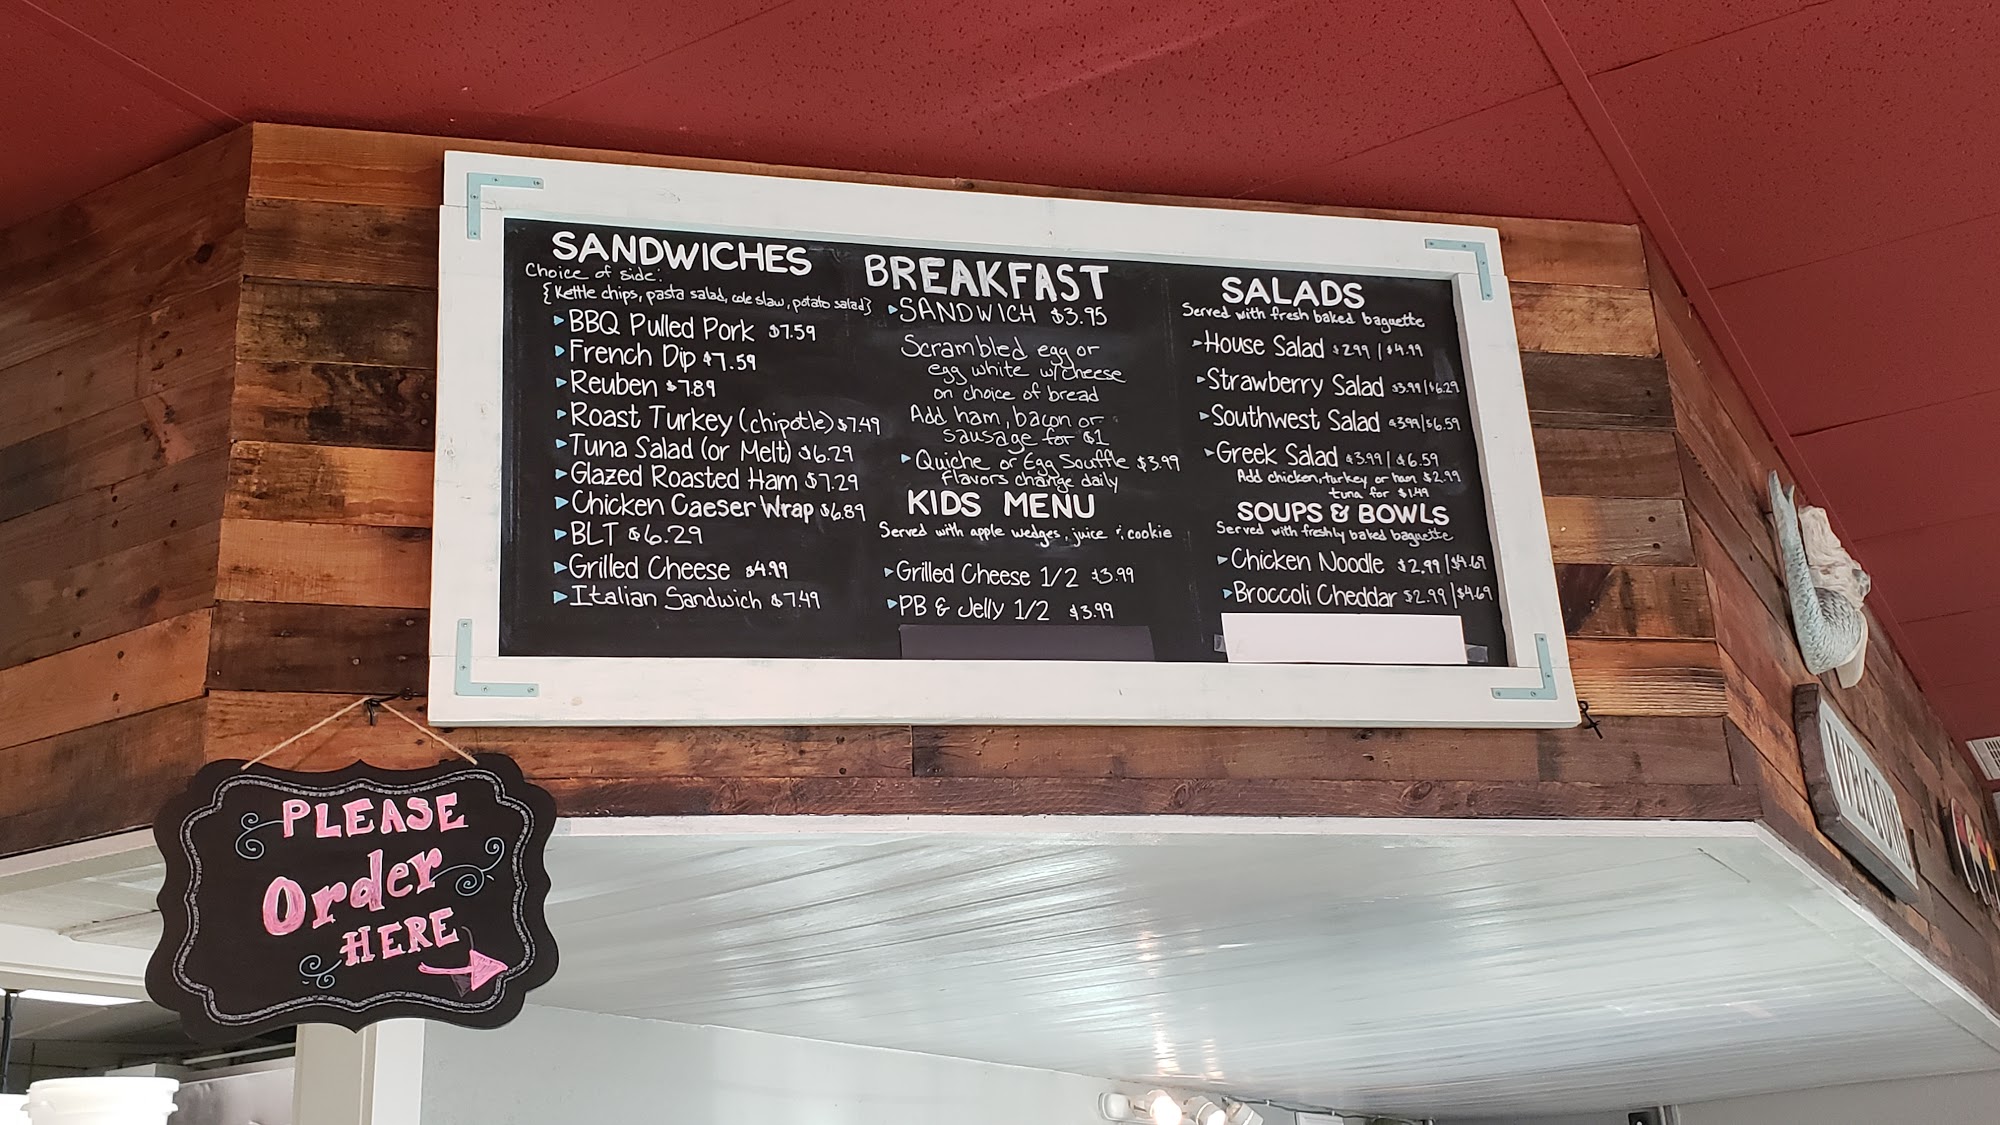 SANDWICHES
Choice of side:
{Kettle chips, pasta salad, cole slaw, potato salad}
BBQ Pulled Pork $7.59
French Dip $7.59
Reuben $7.89
Roast Turkey (chipotle) $7.49
Tuna Salad (or Melt) $6.29
Glazed Roasted Ham $7.29
Chicken Caeser Wrap $6.89
BLT $6.29
Grilled Cheese $4.99
Italian Sandwich $7.49
BREAKFAST
SANDWICH $3.95
Scrambled egg or
egg white w/cheese
on choice of bread
Add ham, bacon or
sausage for $1
Quiche or Egg Souffle $3.99
Flavors change daily
KIDS MENU
Served with apple wedges, juice & cookie
Grilled Cheese 1/2 $3.99
PB & Jelly 1/2 $3.99
SALADS
Served with fresh baked baguette
House Salad $2.99 | $4.99
Strawberry Salad $3.99 | $6.29
Southwest Salad $3.99 | $6.59
Greek Salad $3.99 | $6.59
Add chicken, turkey or ham $2.99
tuna for $1.49
SOUPS & BOWLS
Served with freshly baked baguette
Chicken Noodle $2.99 | $4.69
Broccoli Cheddar $2.99 | $4.69
PLEASE
Order
HERE
WELCOME